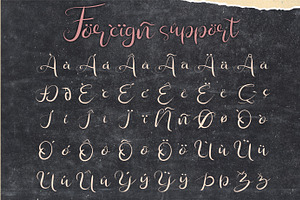 Föreigñ support
Àà Áá Ââ Ãã Ää Åå
Ðð Èè Éé Êê Ëë Çç
Ìì Íí Ïï Ññ Øø Òò
Óó Ôô Õõ Öö Ùù Üü
Úú Ûû Ýÿ Ÿÿ Þþ Žž